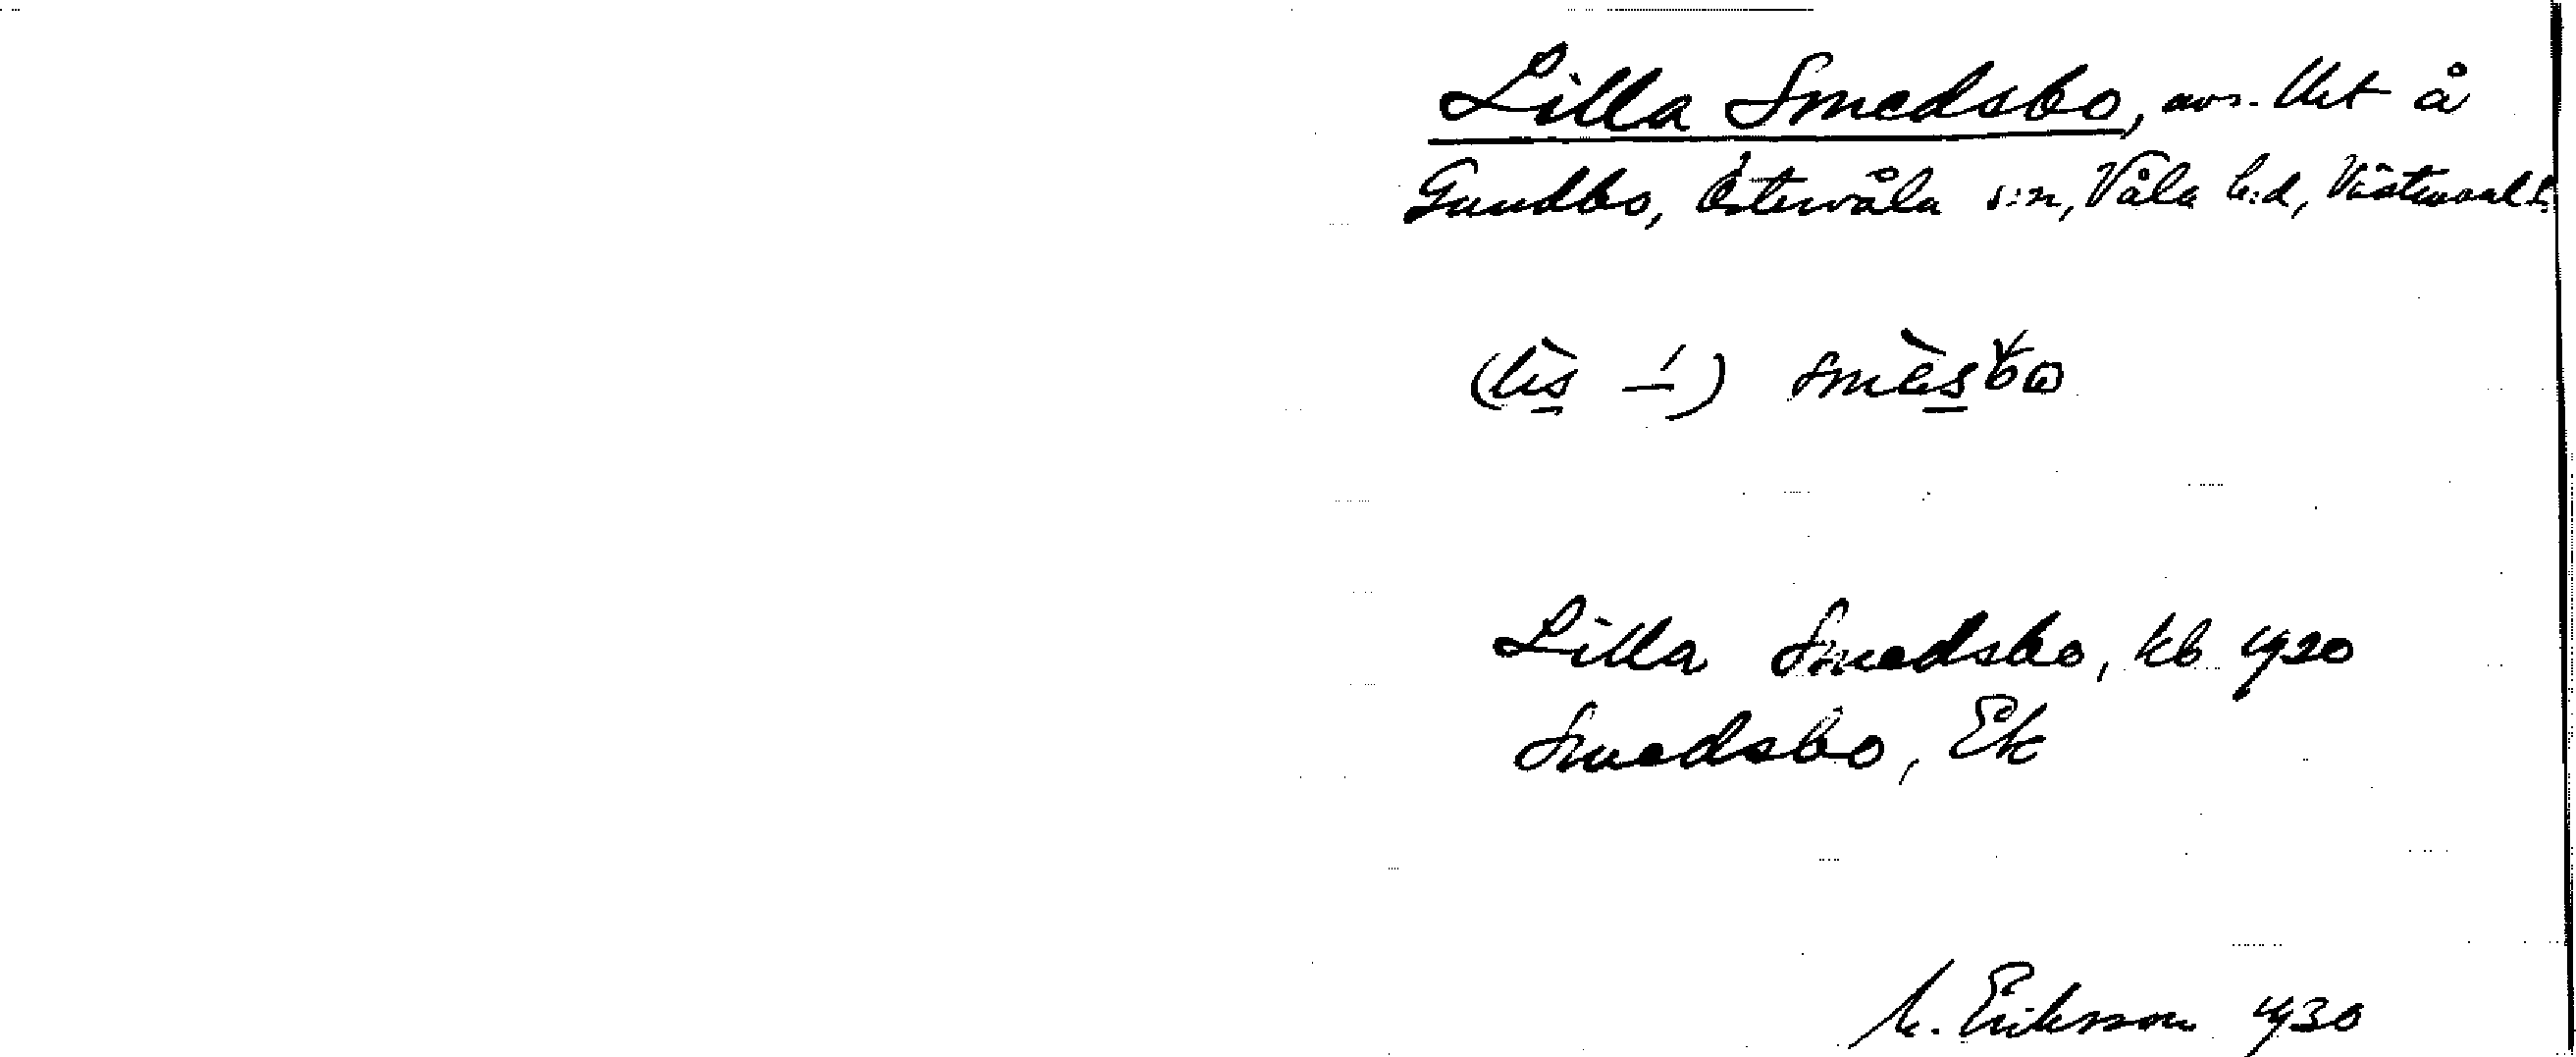 Lilla Smedsbo, avs. lht å
Gundbo, Östervåla s:n, Våla h:d, Västmanl.
smèsbo
Lilla Smedsbo, kb 1920
Smedsbo, Ek
M. Eriksson 1930